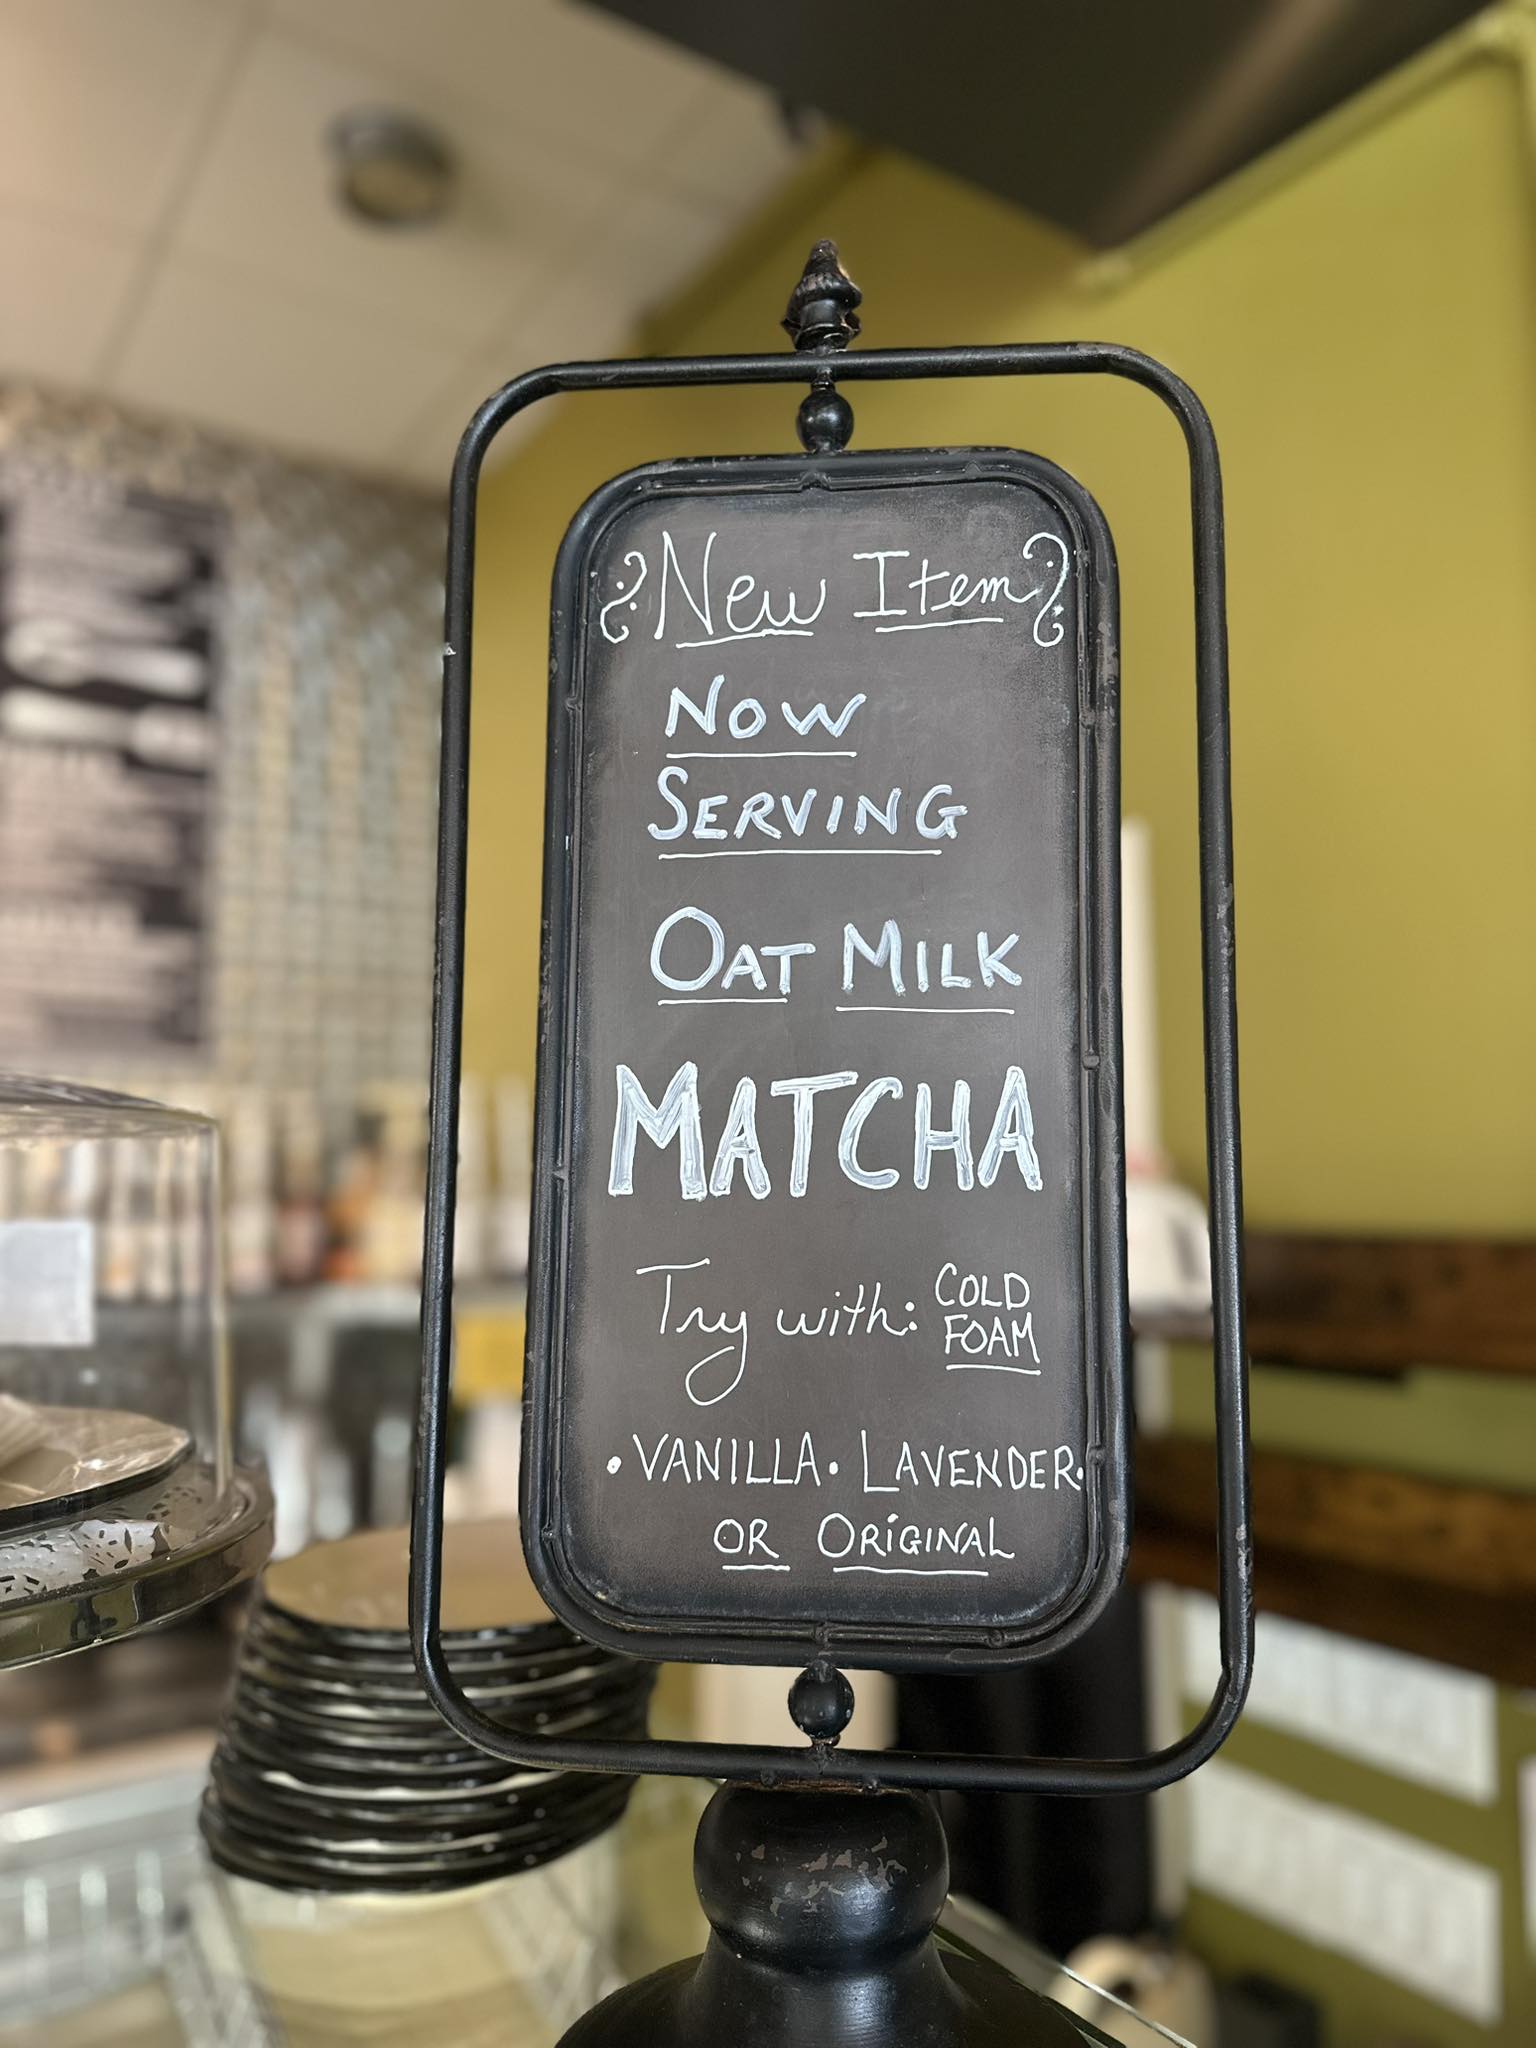 New Item
Now
Serving
Oat Milk
MATCHA
Try with: COLD
FOAM
• VANILLA • LAVENDER •
OR ORiGINAL